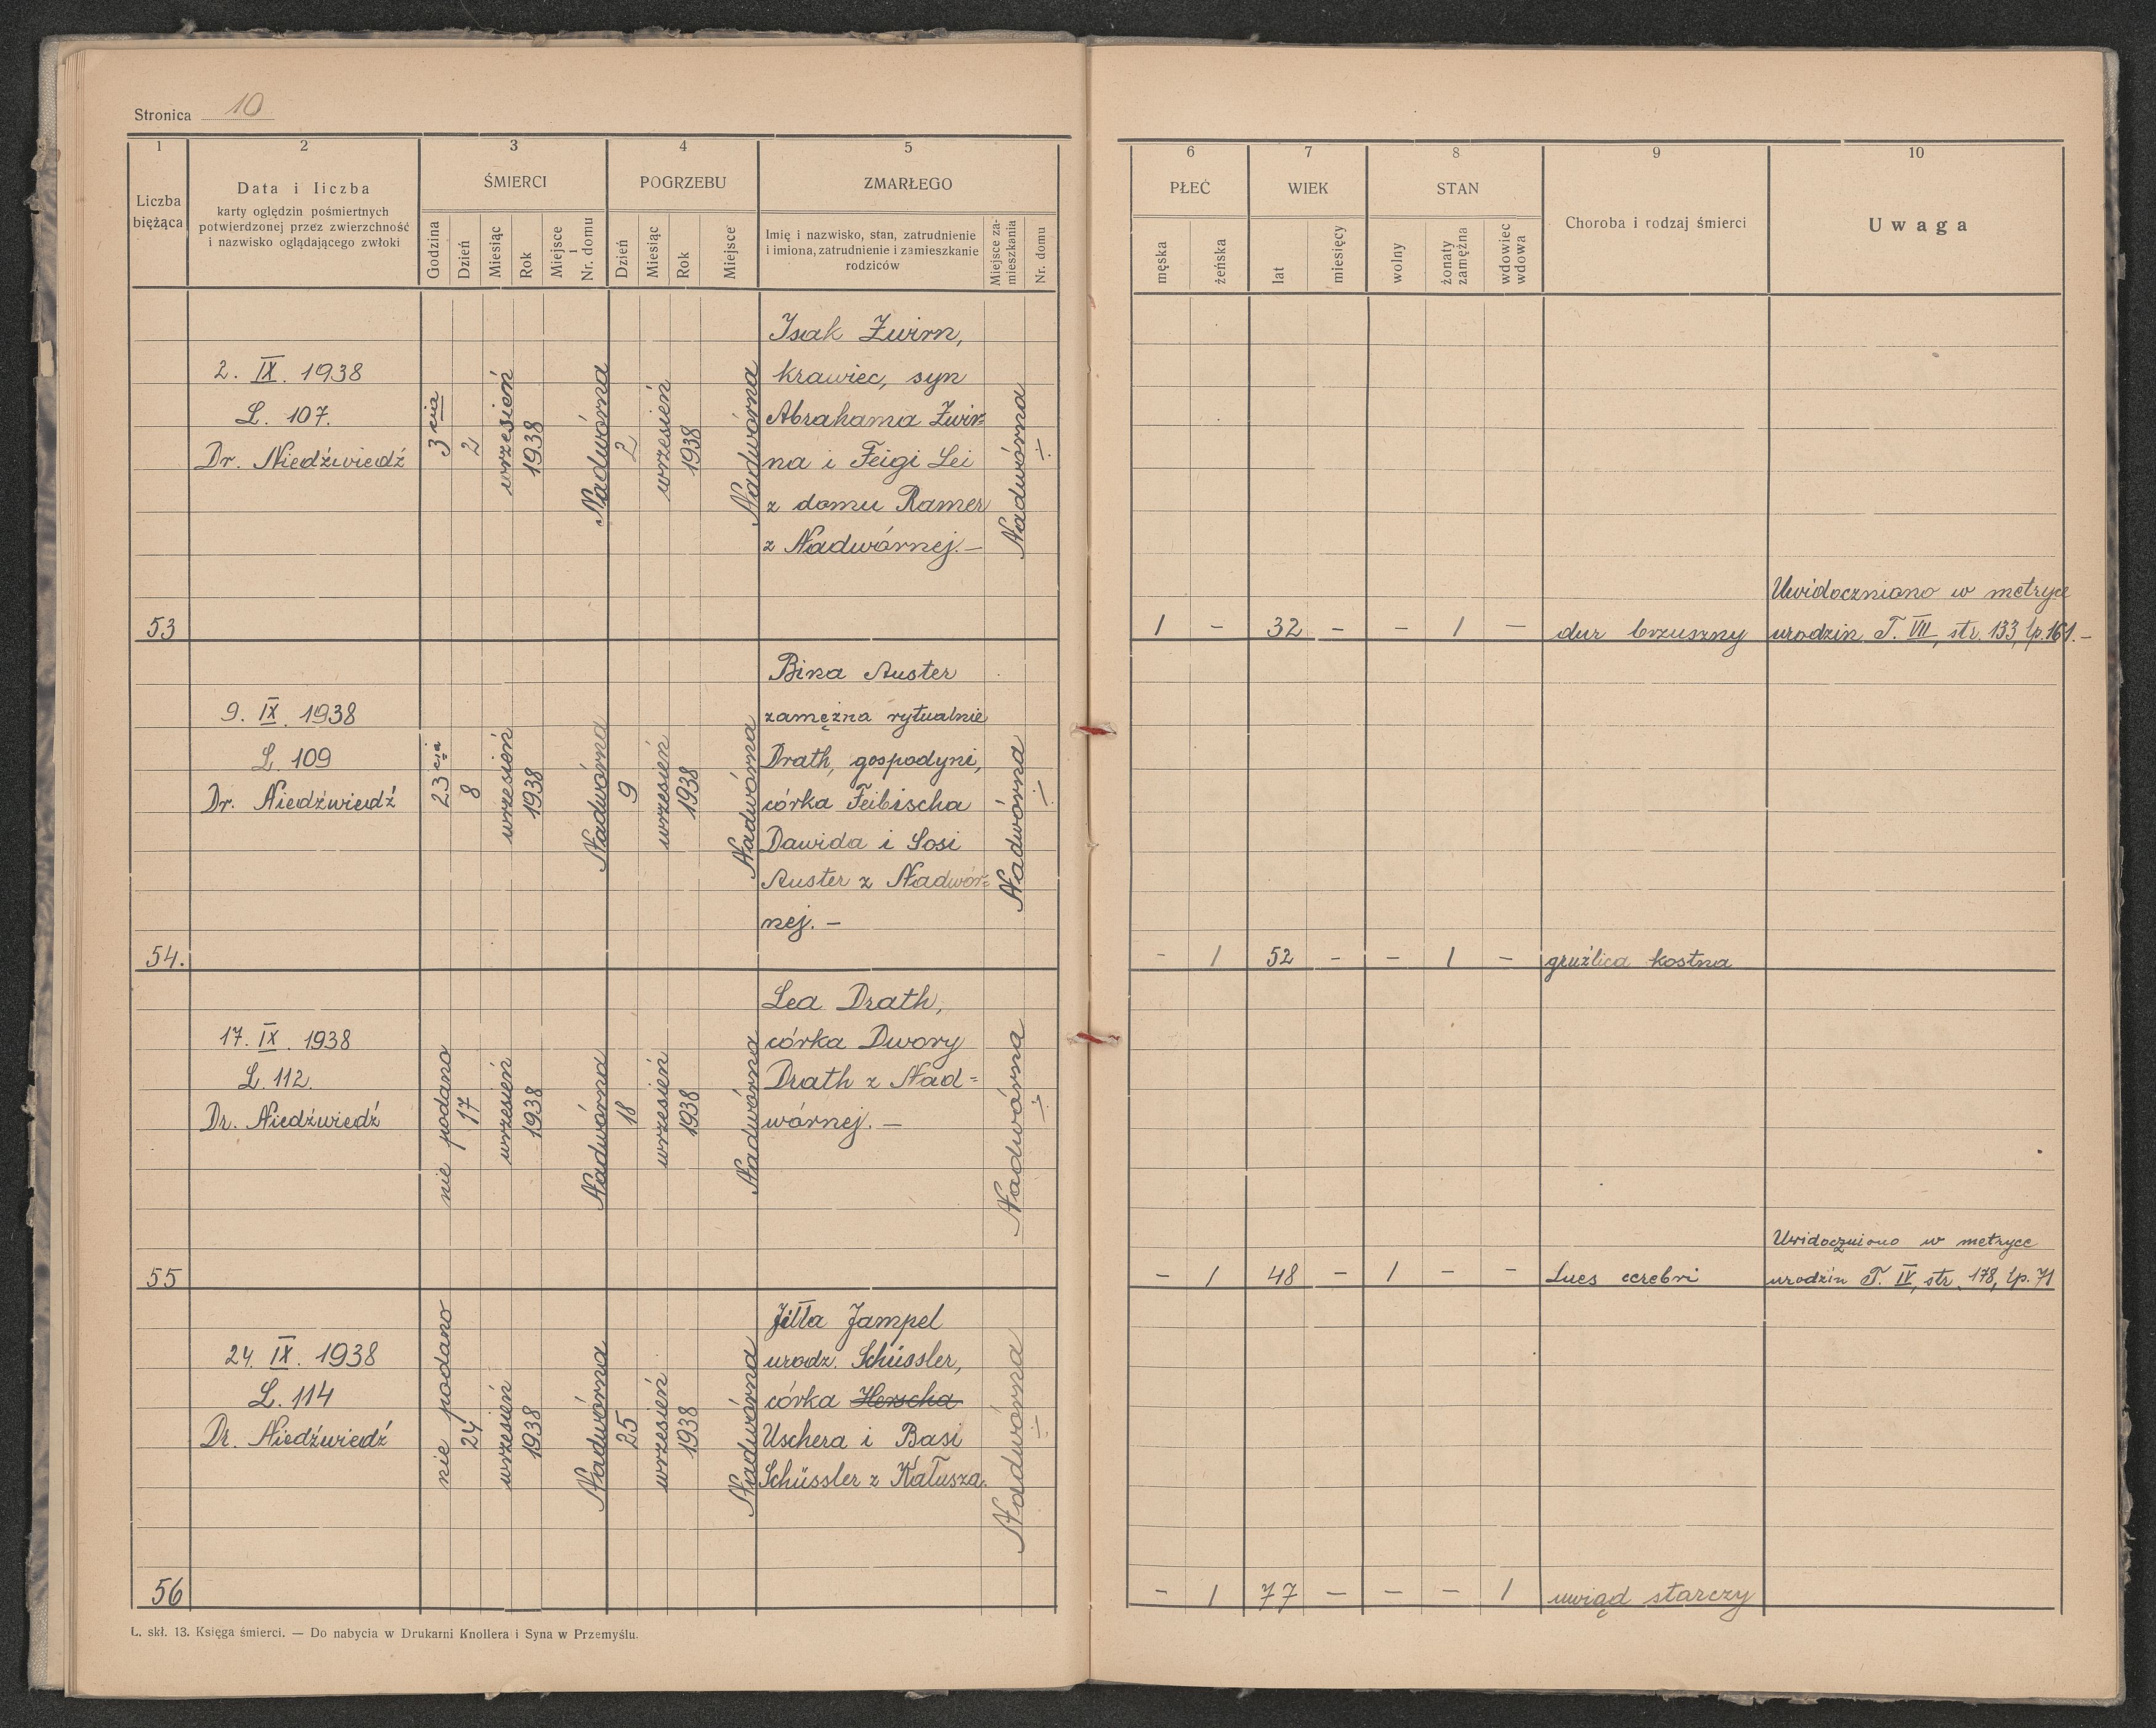 Stronica 10
1 2 3 4 5 6 7 8 9 10
Liczba bieżąca
Data i liczba
karty oględzin pośmiertnych
potwierdzonej przez zwierzchność
i nazwisko oglądającego zwłoki
ŚMIERCI
Godzina
Dzień
Miesiąc
Rok
Miejsce i Nr. domu
POGRZEBU
Dzień
Miesiąc
Rok
Miejsce
ZMARŁEGO
Imię i nazwisko, stan, zatrudnienie
i imiona, zatrudnienie i zamieszkanie
rodziców
Miejsce za-
mieszkania
Nr. domu
PŁEĆ
męska
żeńska
WIEK
lat
miesięcy
STAN
wolny
żonaty
zamężna
wdowiec
wdowa
Choroba i rodzaj śmierci
Uwaga
53
2. IX. 1938
L. 107.
Dr. Niedźwiedź
3 cia
2
wrzesień
1938
Nadwórna
2
wrzesień
1938
Nadwórna
Isak Zwirn,
krawiec, syn
Abrahama Zwir=
na i Feigi Lei
z domu Ramer
z Nadwórnej. —
Nadwórna
1 - 32 - - 1 -
dur brzuszny
Uwidoczniono w metryce
urodzin T. VII, str. 133, lp. 161. -
54.
9. IX. 1938
L. 109
Dr. Niedźwiedź
23 cia
8
wrzesień
1938
Nadwórna
9
wrzesień
1938
Nadwórna
Bina Auster
zamężna rytualnie
Drath, gospodyni,
córka Feibischa
Dawida i Sosi
Auster z Nadwór=
nej. —
Nadwórna
- 1 52 - - 1 -
gruźlica kostna
55
17. IX. 1938
L. 112.
Dr. Niedźwiedź
nie podana
17
wrzesień
1938
Nadwórna
18
wrzesień
1938
Nadwórna
Lea Drath,
córka Dwory
Drath z Nad=
wórnej. —
Nadwórna
- 1 48 - 1 - -
Lues cerebri
Uwidoczniono w metryce
urodzin T. IV, str. 178, lp. 71
56
24. IX. 1938
L. 114
Dr. Niedźwiedź
nie podano
24
wrzesień
1938
Nadwórna
25
wrzesień
1938
Nadwórna
Jitta Jampel
urodz. Schüssler,
córka Herscha
Uschera i Basi
Schüssler z Kałusza.
Nadwórna
- 1 77 - - - 1
uwiąd starczy
L. skł. 13. Księga śmierci. — Do nabycia w Drukarni Knollera i Syna w Przemyślu.